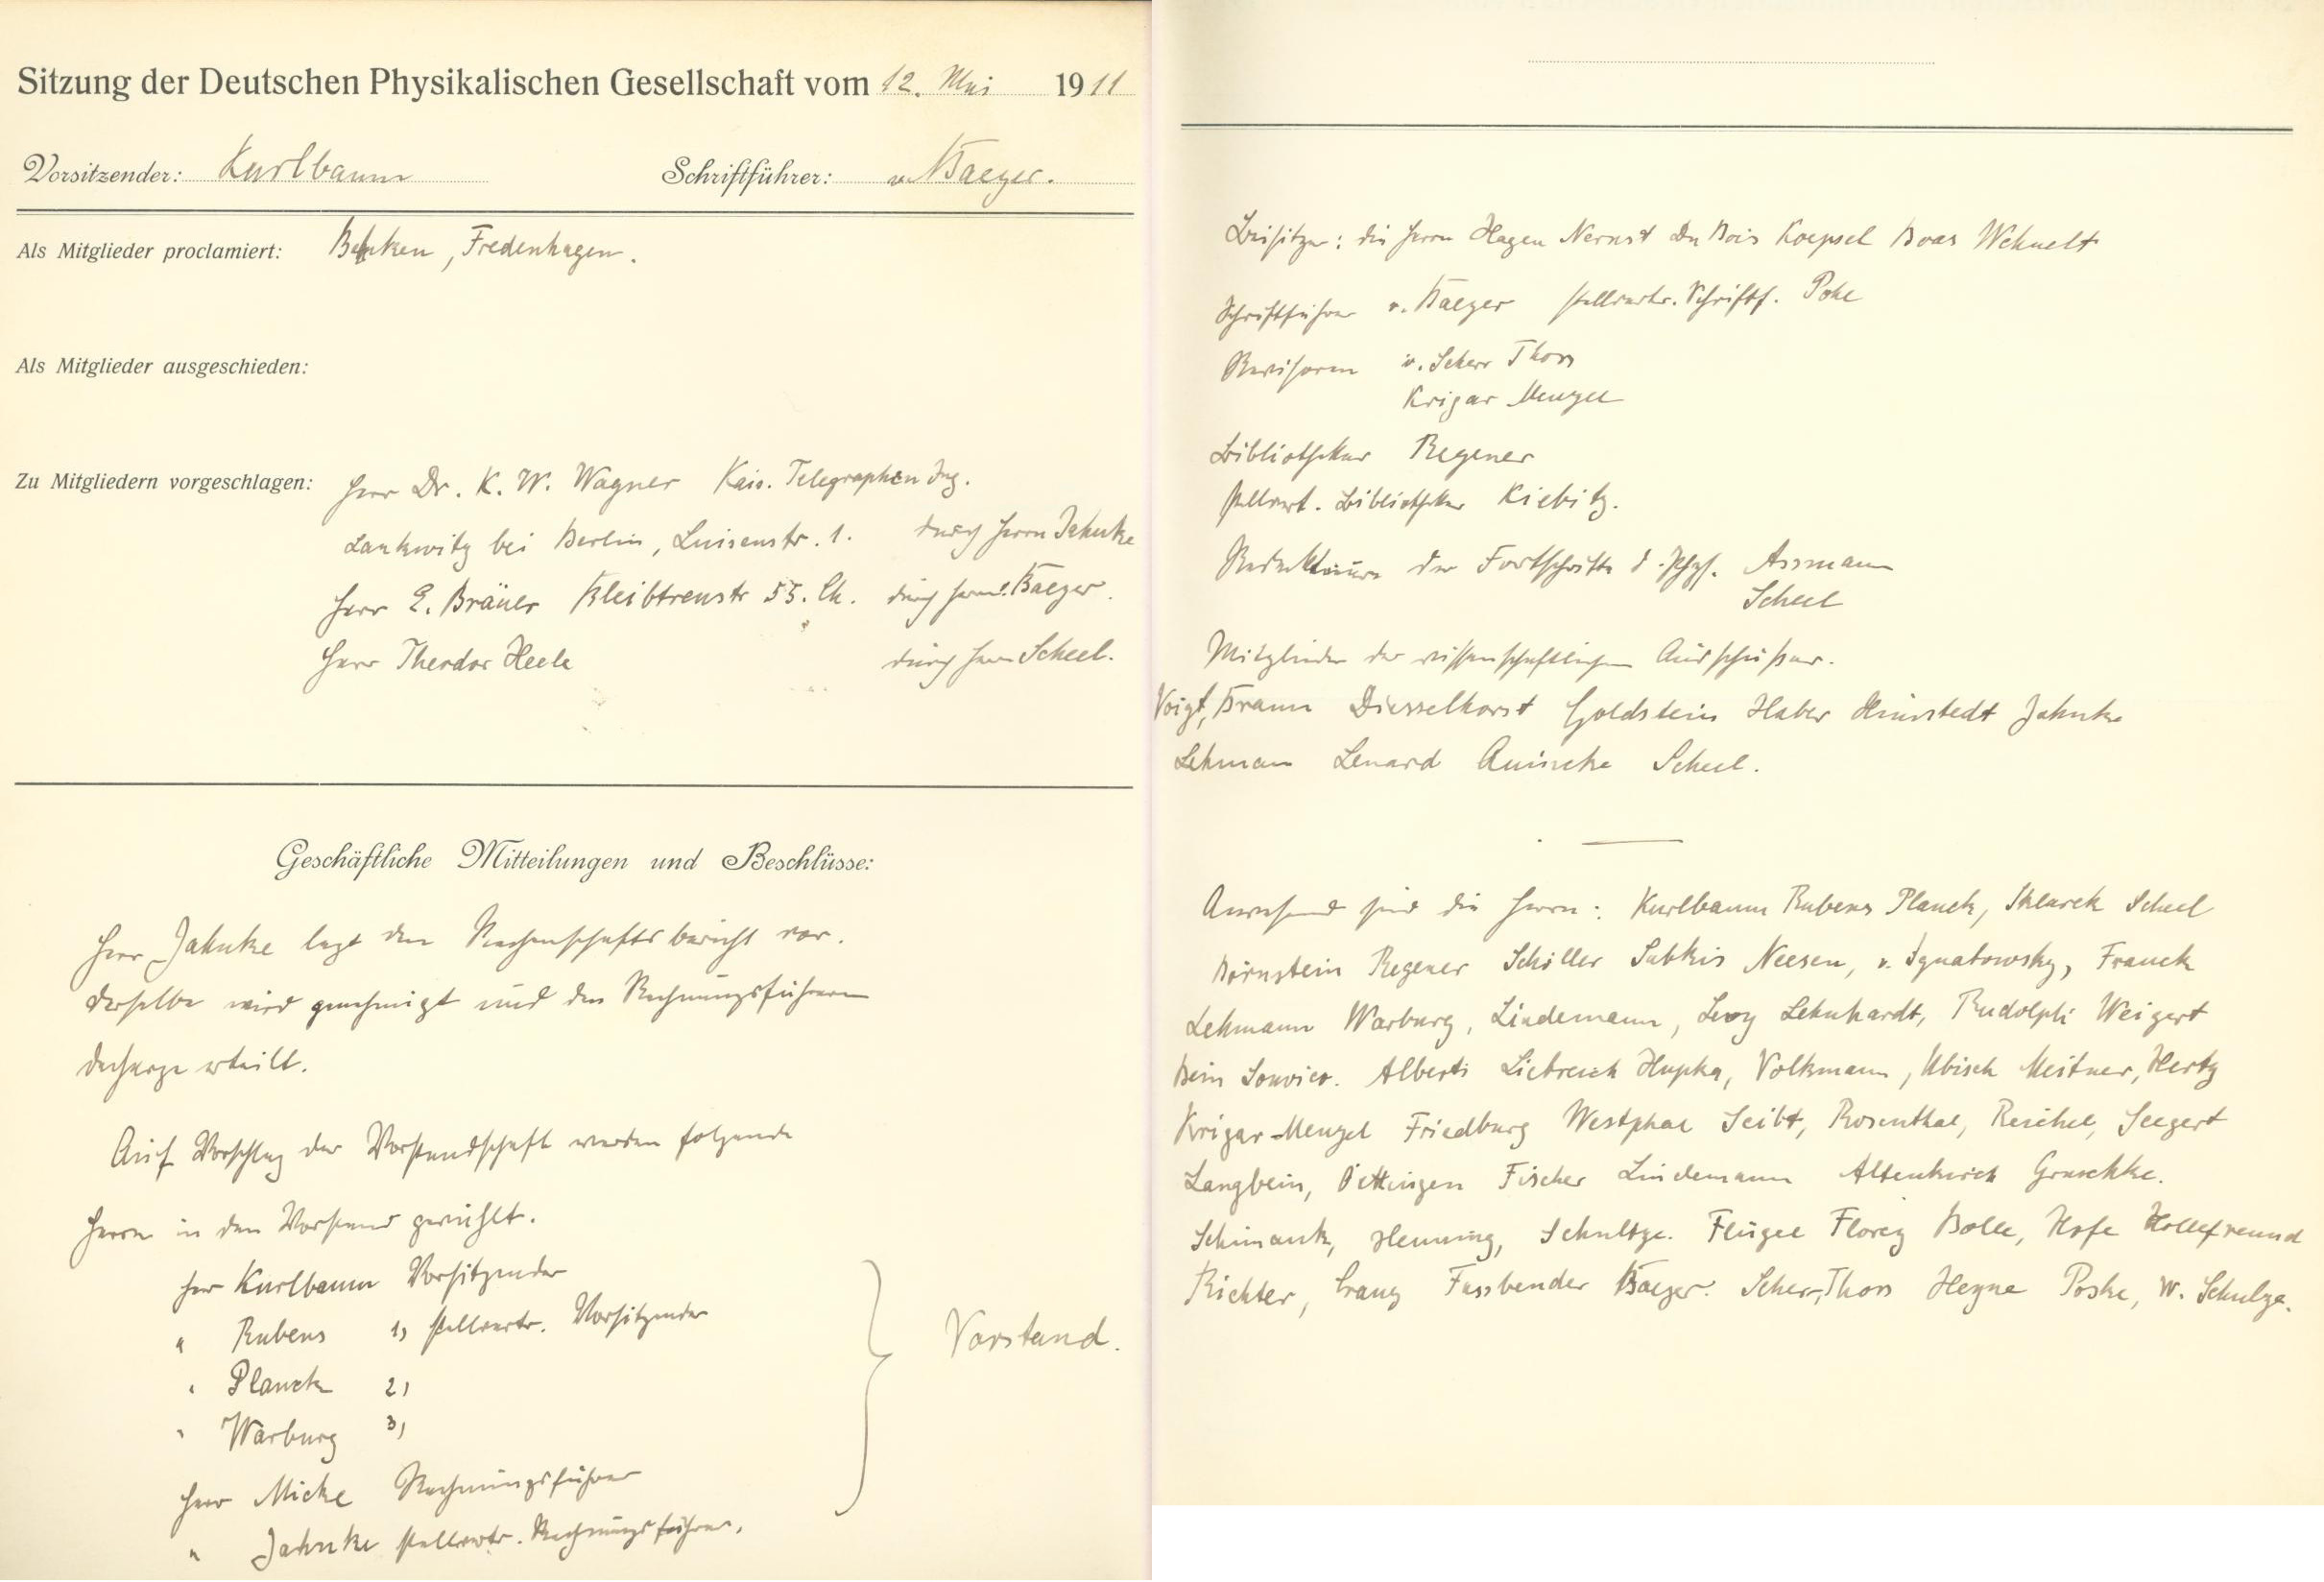 Sitzung der Deutschen Physikalischen Gesellschaft vom 12. Mai 1911
Vorsitzender: Kurlbaum Schriftführer: v. Baeyer.
Als Mitglieder proclamiert: Behnken, Fredenhagen.
Als Mitglieder ausgeschieden:
Zu Mitgliedern vorgeschlagen: Herr Dr. K. W. Wagner Kais. Telegraphen Ing.
Lankwitz bei Berlin, Luisenstr. 1. durch Herrn Jahnke
Herr E. Bräuer Bleibtreustr 55. Ch. durch Herrn v. Baeyer.
Herr Theodor Heele durch Herrn Scheel.
Geschäftliche Mitteilungen und Beschlüsse:
Herr Jahnke legt den Rechenschaftsbericht vor.
Derselbe wird genehmigt und den Rechnungsführern
Decharge erteilt.
Auf Vorschlag der Vorstandschaft werden folgende
Herrn in den Vorstand gewählt.
Herr Kurlbaum Vorsitzender
" Rubens 1) stellvertr. Vorsitzender
" Planck 2)
" Warburg 3)
Herr Micke Rechnungsführer
" Jahnke stellvertr. Rechnungsführer.
Vorstand.
Beisitzer: die Herrn Hagen Nernst Du Bois Koepsel Boas Wehnelt
Schriftführer v. Baeyer stellvertr. Schriftf. Pohl
Revisoren v. Scherr Thoss
Krigar Menzel
Bibliothekar Regener
stellvert. Bibliothekar Kiebitz.
Redakteure der Fortschritte d. Phys. Assmann
Scheel
Mitglieder des wissenschaftlichen Ausschusses.
Voigt, Braun Diesselhorst Goldstein Haber Himstedt Jahnke
Lehmann Lenard Quincke Scheel.
Anwesend sind die Herrn: Kurlbaum Rubens Planck, Sklarek Scheel
Börnstein Regener Schiller Subkis Neesen, v. Ignatowsky, Franck
Lehmann Warburg, Lindemann, Levy Lehnhardt, Rudolph Weigert
Bein Souvier. Alberti Liebreich Hupka, Volkmann, Ubisch Meitner, Hertz
Krigar-Menzel Friedburg Westphal Seibt, Rosenthal, Reichel, Seegert
Langbein, Oettingen Fischer Lindemann Altenkirch Gruschke.
Schimank, Henning, Schultze. Flügel Florey Bolle, Hofe Hollefreund
Richter, Cranz Fassbender Baeyer. Scherr-Thoss Heyne Poske, W. Schulze.